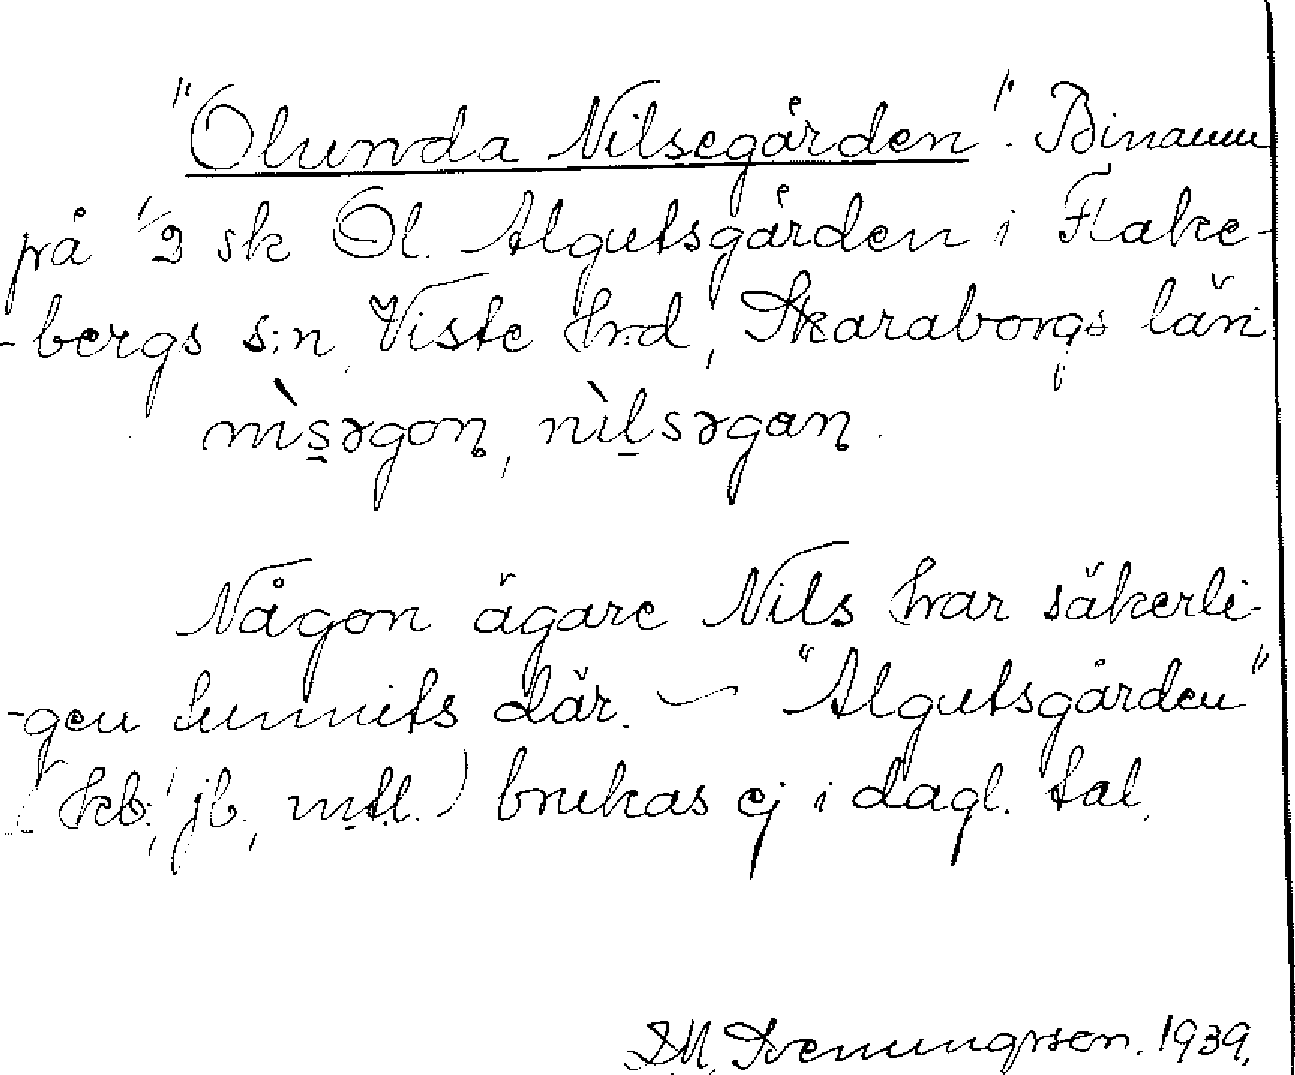 "Ölunda Nilsegården". Binamn
på 1/2 sk Öl. Algutsgården i Flake-
-bergs s:n, Viste hrd, Skaraborgs län.
nìsəgoɳ, nìlsəgaɳ.
Någon ägare Nils har säkerli-
-gen funnits där. – "Algutsgården"
(kb., jb., mtl.) brukas ej i dagl. tal.
1939.